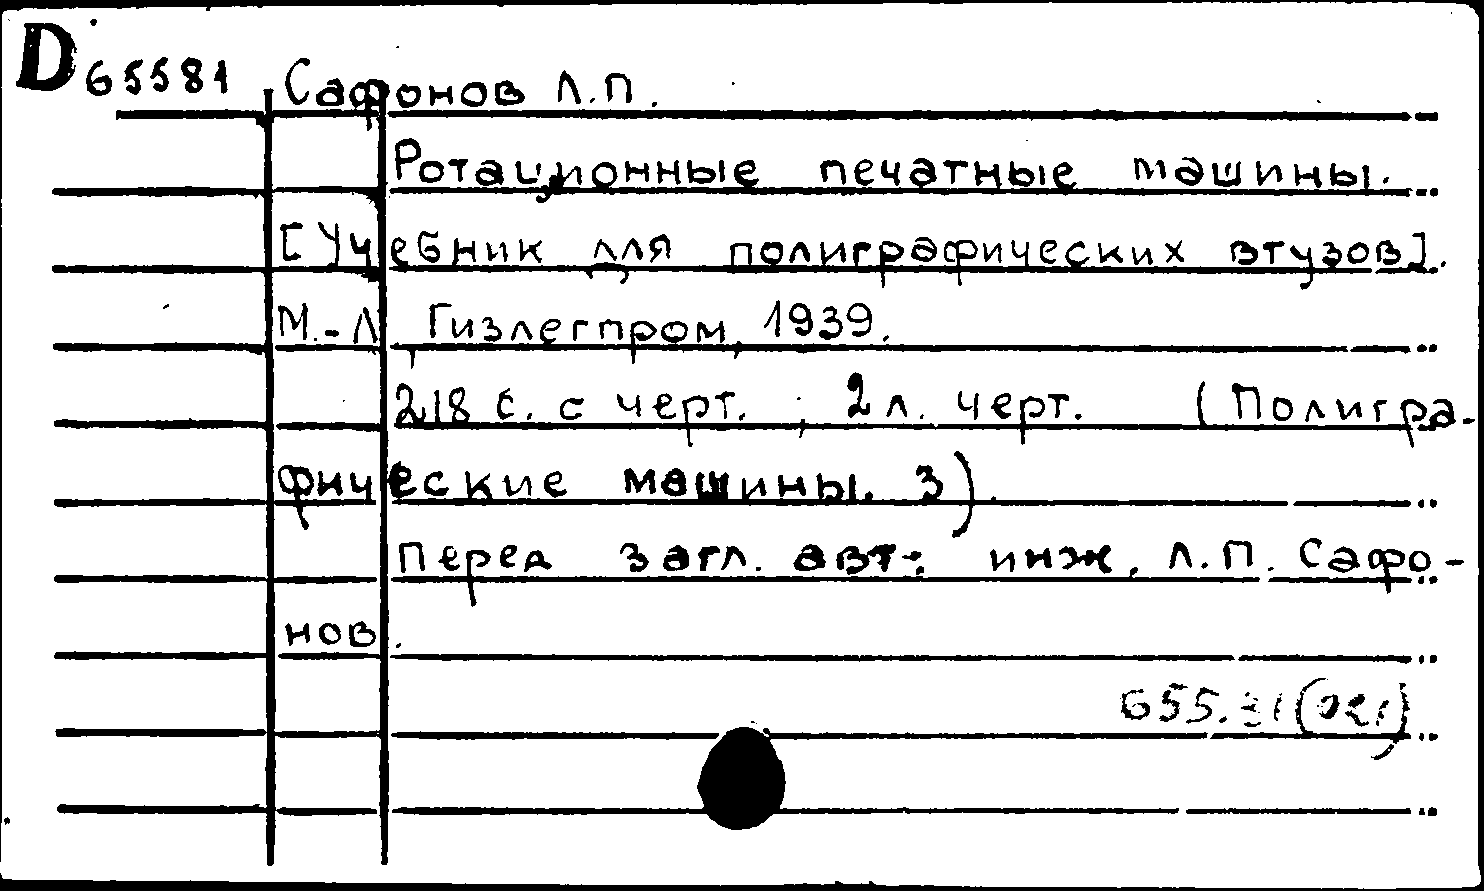 D 65581 Сафонов Л.П.
Ротационные печатные машины.
[Учебник для полиграфических втузов].
М.-Л, Гизлегпром, 1939.
218 с. с черт. ; 2 л. черт. (Полигра-
фические машины. 3).
Перед загл. авт.: инж. Л.П. Сафо-
нов.
655.31(021)